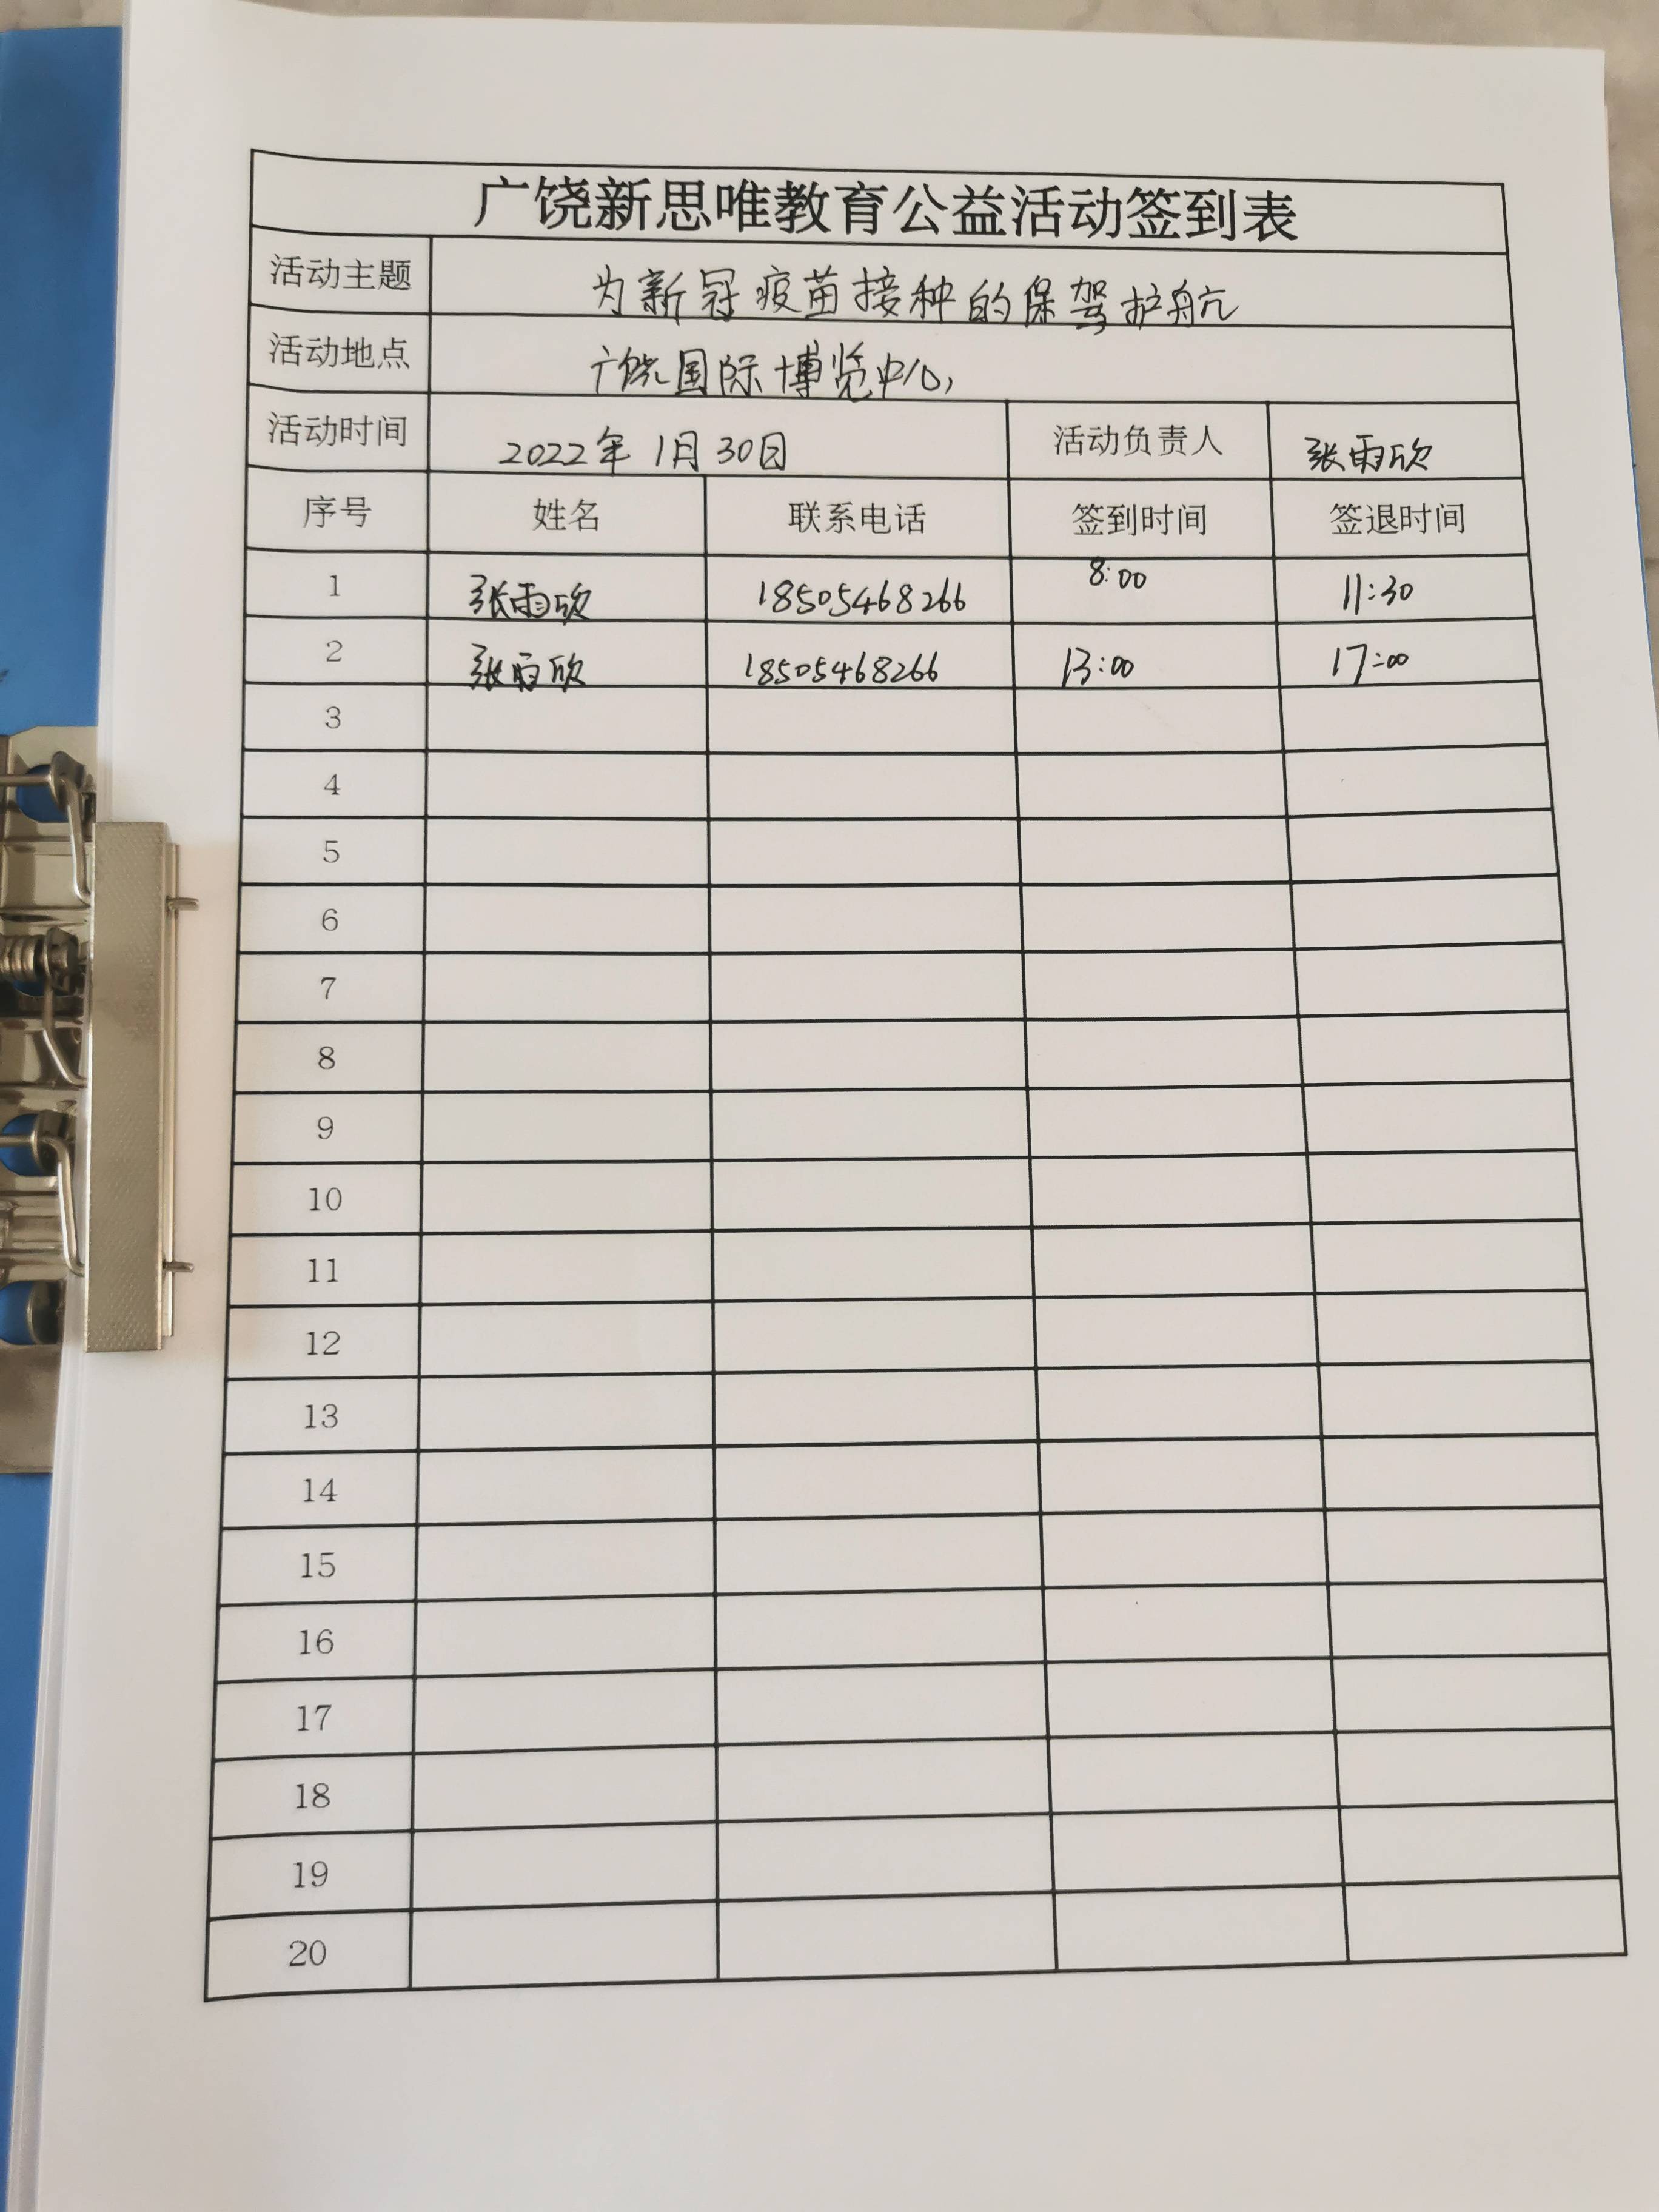 广饶新思唯教育公益活动签到表
活动主题 为新冠疫苗接种的保驾护航
活动地点 广饶国际博览中心
活动时间 2022年1月30日 活动负责人 张雨欣
序号 姓名 联系电话 签到时间 签退时间
1 张雨欣 18505468266 8:00 11:30
2 张雨欣 18505468266 13:00 17:00
3
4
5
6
7
8
9
10
11
12
13
14
15
16
17
18
19
20